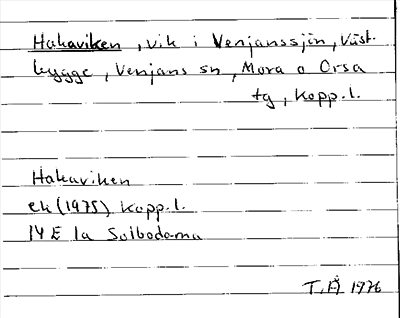 Hakaviken, vik i Venjanssjön, Väst-
bygge, Venjans sn, Mora o Orsa
tg, Kopp.l.
Hakaviken
ek (1975) Kopp.l.
14 E 1a Solbodarna
T.Å 1976